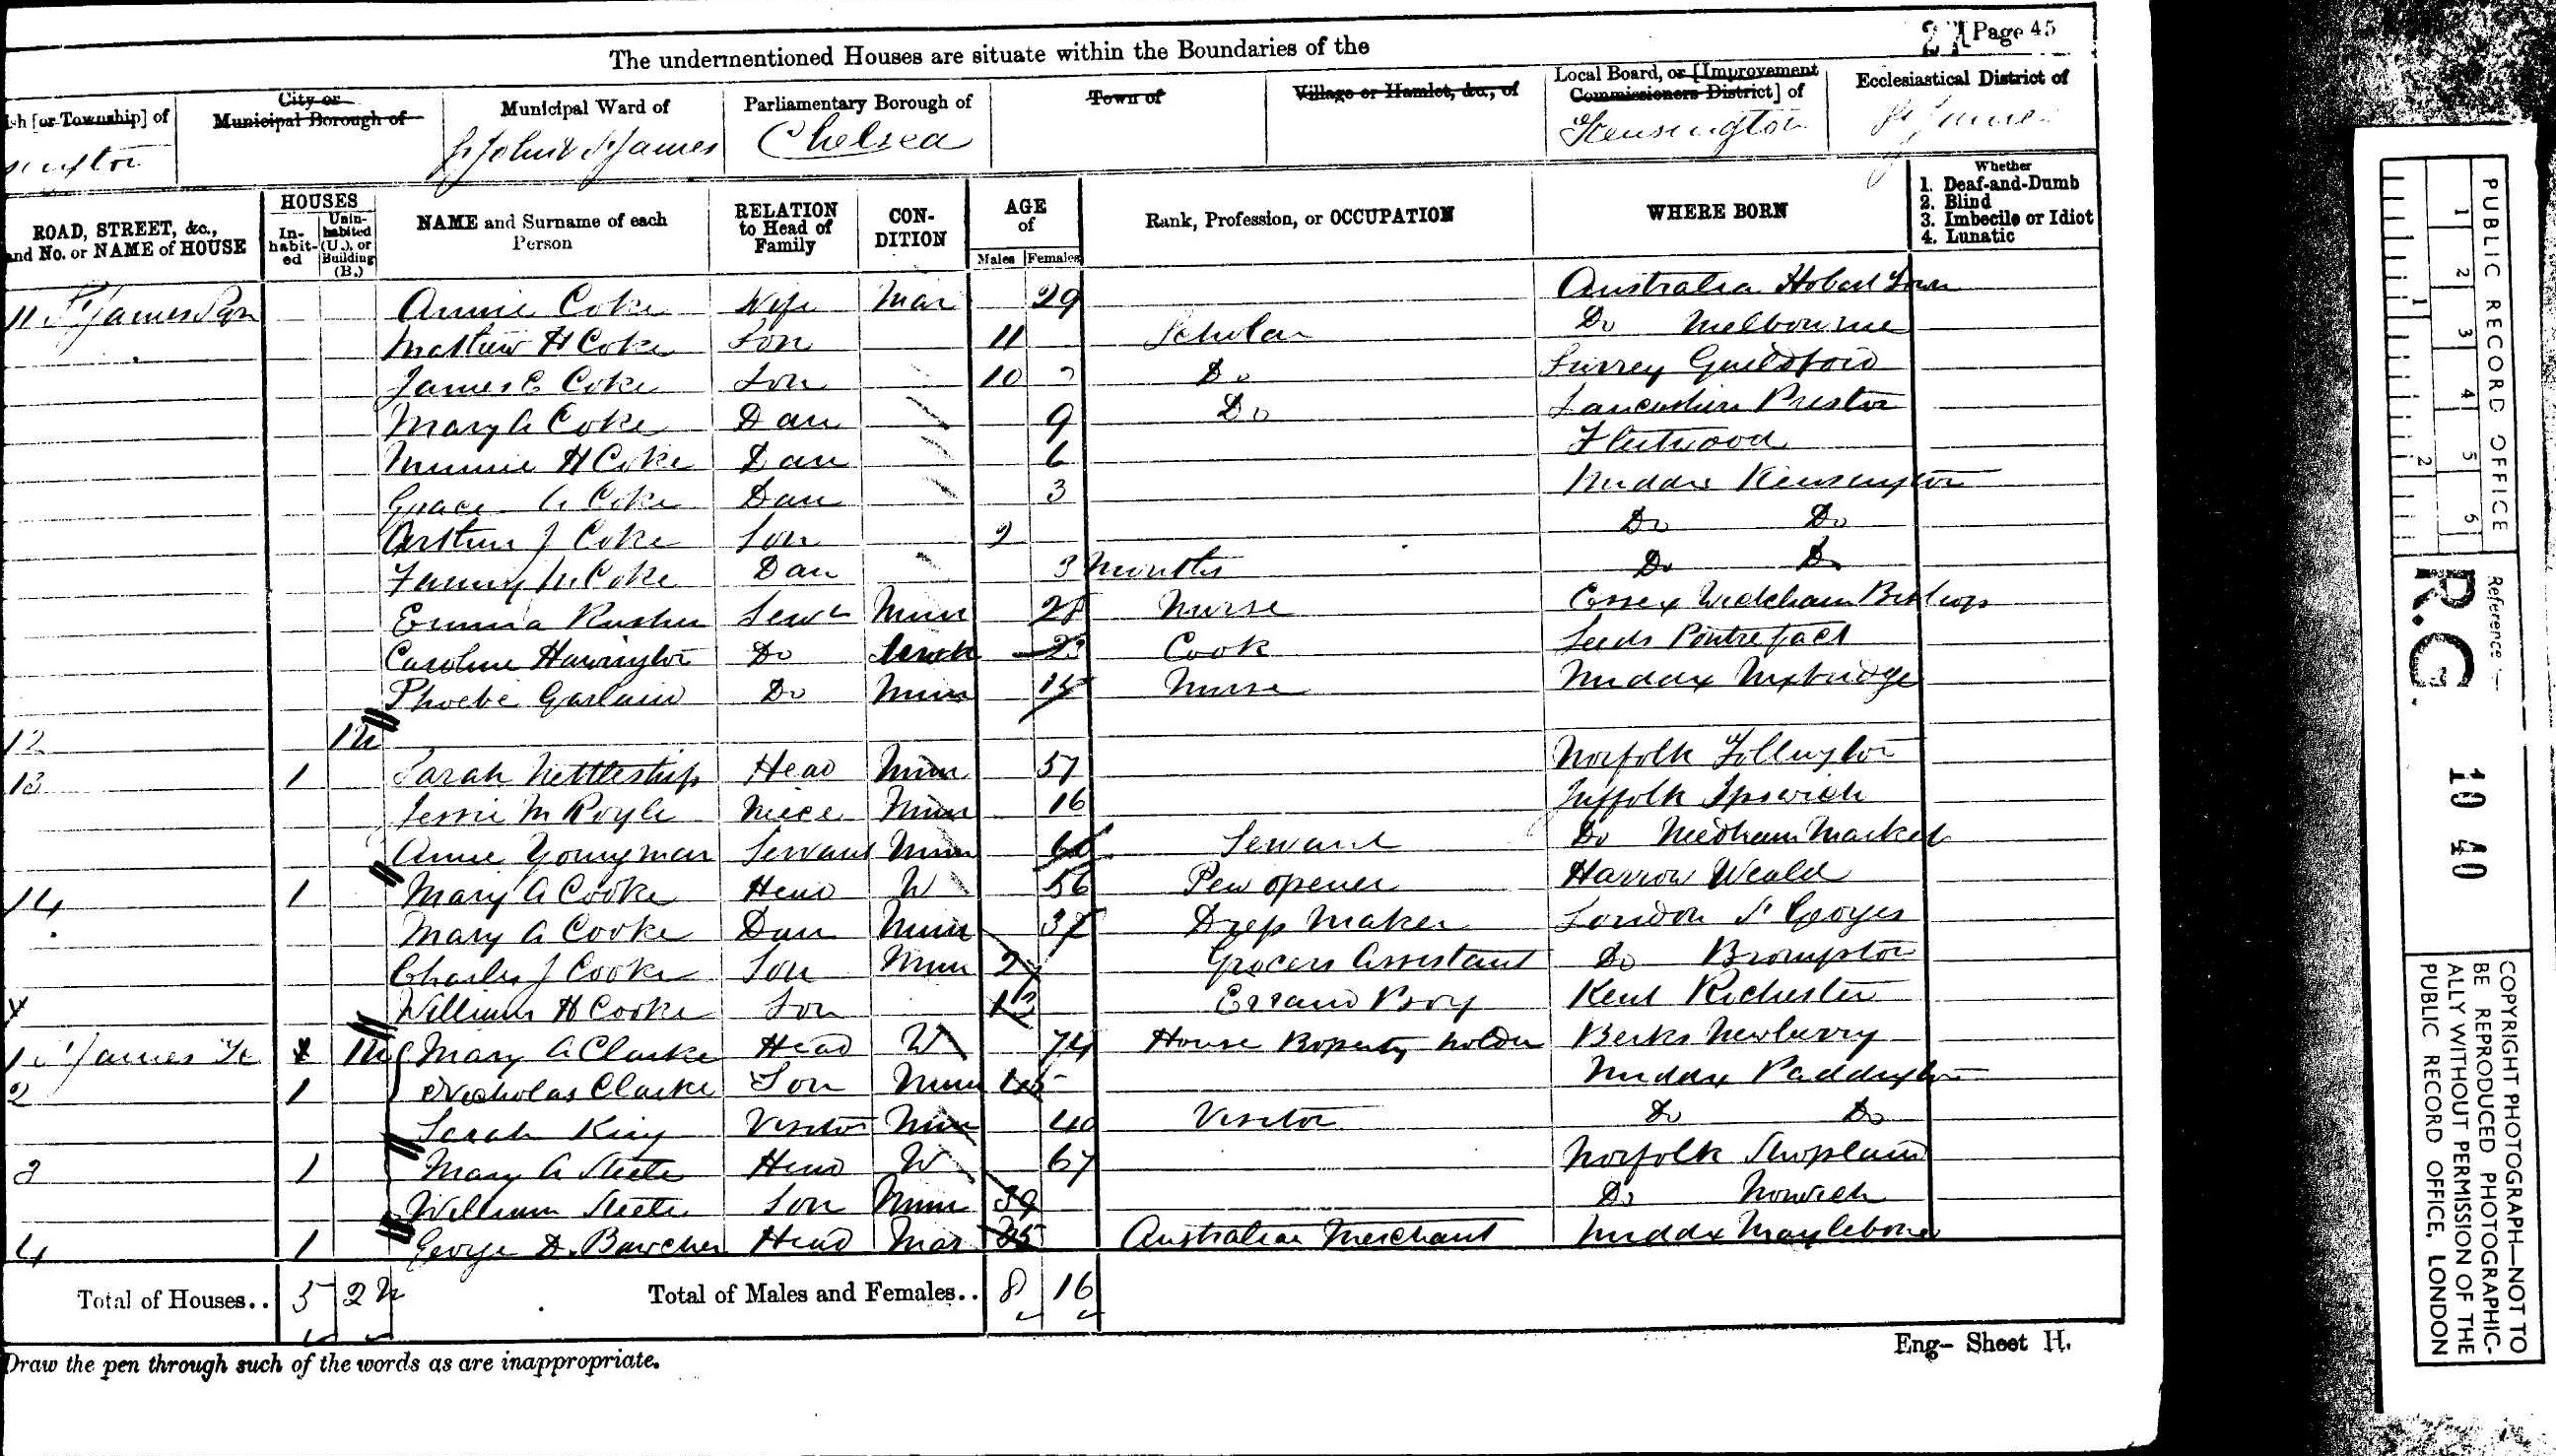 Page 45
The undermentioned Houses are situate within the Boundaries of the
sh [or Township] of
City or Municipal Borough of
Municipal Ward of
St John & St James
Parliamentary Borough of
Chelsea
Town of
Village or Hamlet, &c., of
Local Board, or [Improvement Commissioners District] of
Kensington
Ecclesiastical District of
St James
ROAD, STREET, &c., and No. or NAME of HOUSE
HOUSES
Inhabited
Uninhabited (U.), or Building (B.)
NAME and Surname of each Person
RELATION to Head of Family
CONDITION
AGE of
Males Females
Rank, Profession, or OCCUPATION
WHERE BORN
Whether
1. Deaf-and-Dumb
2. Blind
3. Imbecile or Idiot
4. Lunatic
11 St James Sqr Annie Coke Wife Mar 29 Australia Hobart Town
Mathew H Coke Son 11 Scholar Do Melbourne
James E Coke Son 10 Do Surrey Guildford
Mary A Coke Dau 9 Do Lancashire Preston
Minnie H Coke Dau 6 Fleetwood
Grace A Coke Dau 3 Middx Kensington
Arthur J Coke Son 2 Do Do
Fanny M Coke Dau 3 Months Do Do
Emma Rusher Servt Unm 28 Nurse Essex Wickham Bishops
Caroline Harrington Do Cook Leeds Pontrefact
Phoebe Do Unm 15 Nurse Middx Uxbridge
12 1U
13 1 Sarah Nettleship Head Unm 57 Norfolk
Jessie M Royle Niece Unm 16 Suffolk Ipswich
Annie Youngman Servant Unm Servant Do Needham Market
14 1 Mary A Cooke Head W 56 Pew opener Harrow Weald
Mary A Cooke Dau Unm 37 Dress Maker London St Georges
Charles J Cooke Son Unm Grocers Assistant Do Brompton
William H Cooke Son 13 Errand Boy Kent
1 St James St 1U Mary A Clarke Head W 74 House Property holder Berks Newberry
2 1 Nicholas Clarke Son Unm 45 Middx Paddington
Sarah King Visitor Unm 40 Visitor Do Do
3 1 Mary A Head W 67 Norfolk
William Son Unm 39 Do Norwich
4 1 George D. Bowcher Head Mar 35 Australian Merchant Middx Maylebone
Total of Houses.. 5 2U Total of Males and Females.. 8 16
Draw the pen through such of the words as are inappropriate.
Eng— Sheet H.
PUBLIC RECORD OFFICE
1 2 3 4 5 6
1 2
Reference :—
R.G. 10 40
COPYRIGHT PHOTOGRAPH—NOT TO
BE REPRODUCED PHOTOGRAPHIC-
ALLY WITHOUT PERMISSION OF THE
PUBLIC RECORD OFFICE, LONDON